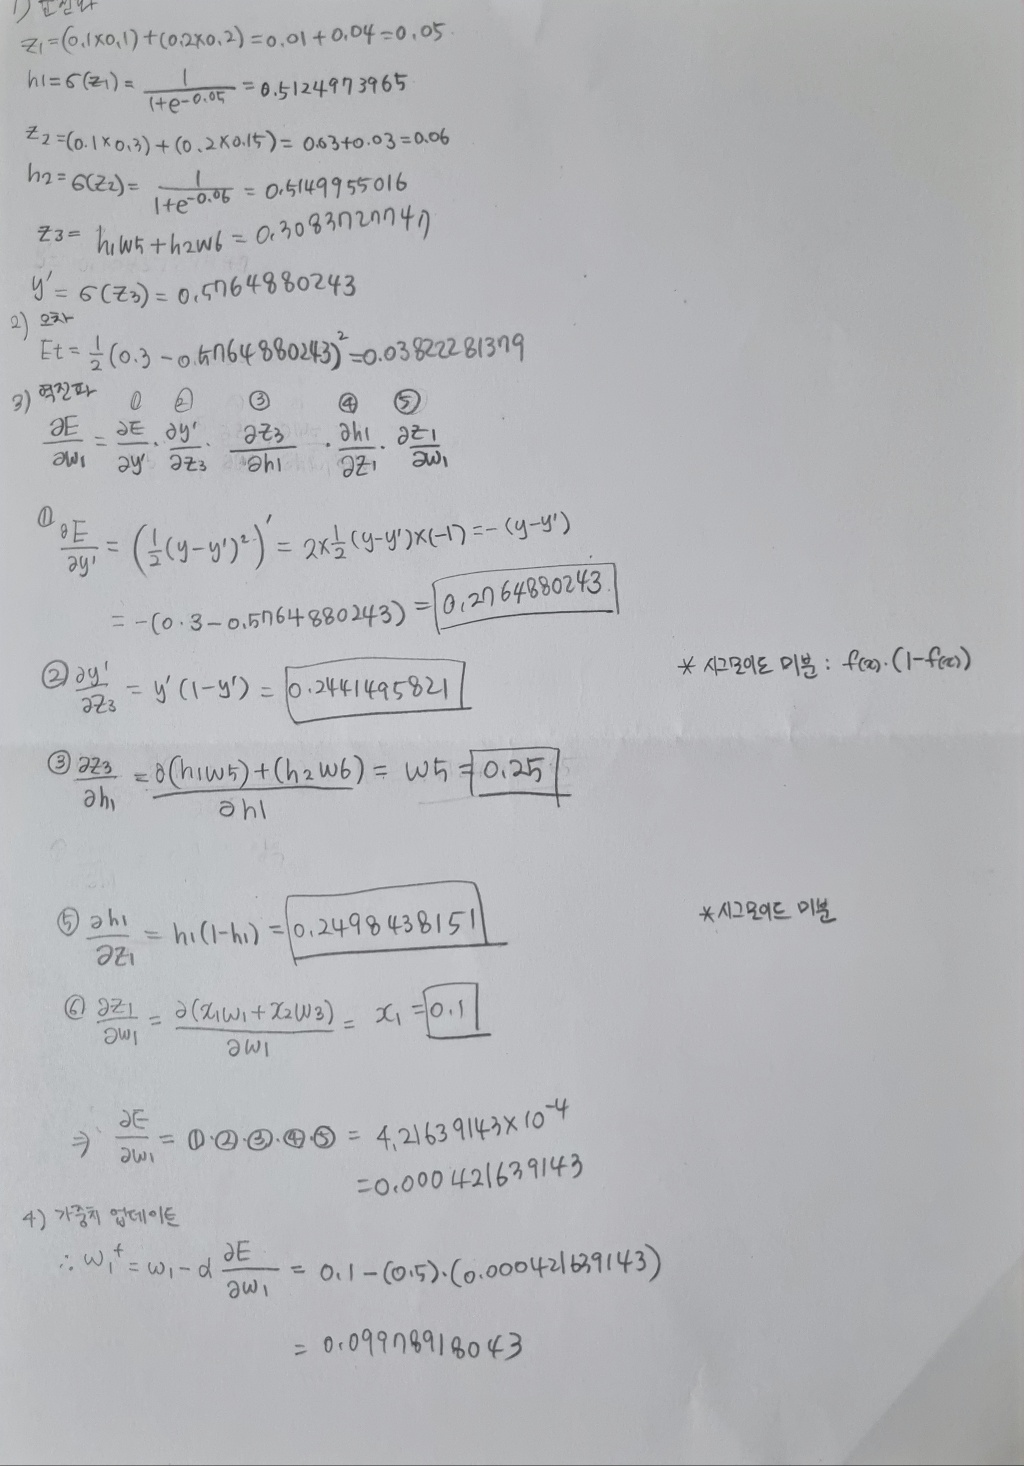 1) 순전파
z₁=(0.1×0.1)+(0.2×0.2)=0.01+0.04=0.05
h1=σ(z₁)= 1/(1+e^-0.05) =0.5124973965
z₂=(0.1×0.3)+(0.2×0.15)=0.03+0.03=0.06
h₂=σ(z₂)= 1/(1+e^-0.06) =0.5149955016
z₃= h₁w5+h₂w6=0.3083727747
y'=σ(z₃)=0.5764880243
2) 오차
Et=½(0.3-0.5764880243)²=0.03822281379
3) 역전파
① ② ③ ④ ⑤
∂E/∂w₁ = ∂E/∂y' · ∂y'/∂z₃ · ∂z₃/∂h1 · ∂h1/∂z₁ · ∂z₁/∂w₁
① ∂E/∂y' = (½(y-y')²)' = 2×½(y-y')×(-1)=-(y-y')
=-(0.3-0.5764880243) = 0.2764880243
② ∂y'/∂z₃ = y'(1-y') = 0.2441495821 * 시그모이드 미분 : f(x)·(1-f(x))
③ ∂z₃/∂h₁ = ∂(h1w5)+(h₂w6)/∂h1 = w5 = 0.25
⑤ ∂h₁/∂z₁ = h₁(1-h₁) = 0.2498438151 *시그모이드 미분
⑥ ∂z₁/∂w₁ = ∂(x₁w₁+x₂w₃)/∂w₁ = x₁ = 0.1
⇒ ∂E/∂w₁ = ①·②·③·④·⑤ = 4.21639143×10⁻⁴
=0.000421639143
4) 가중치 업데이트
∴ w₁⁺=w₁-α ∂E/∂w₁ = 0.1-(0.5)·(0.000421639143)
= 0.09978918043